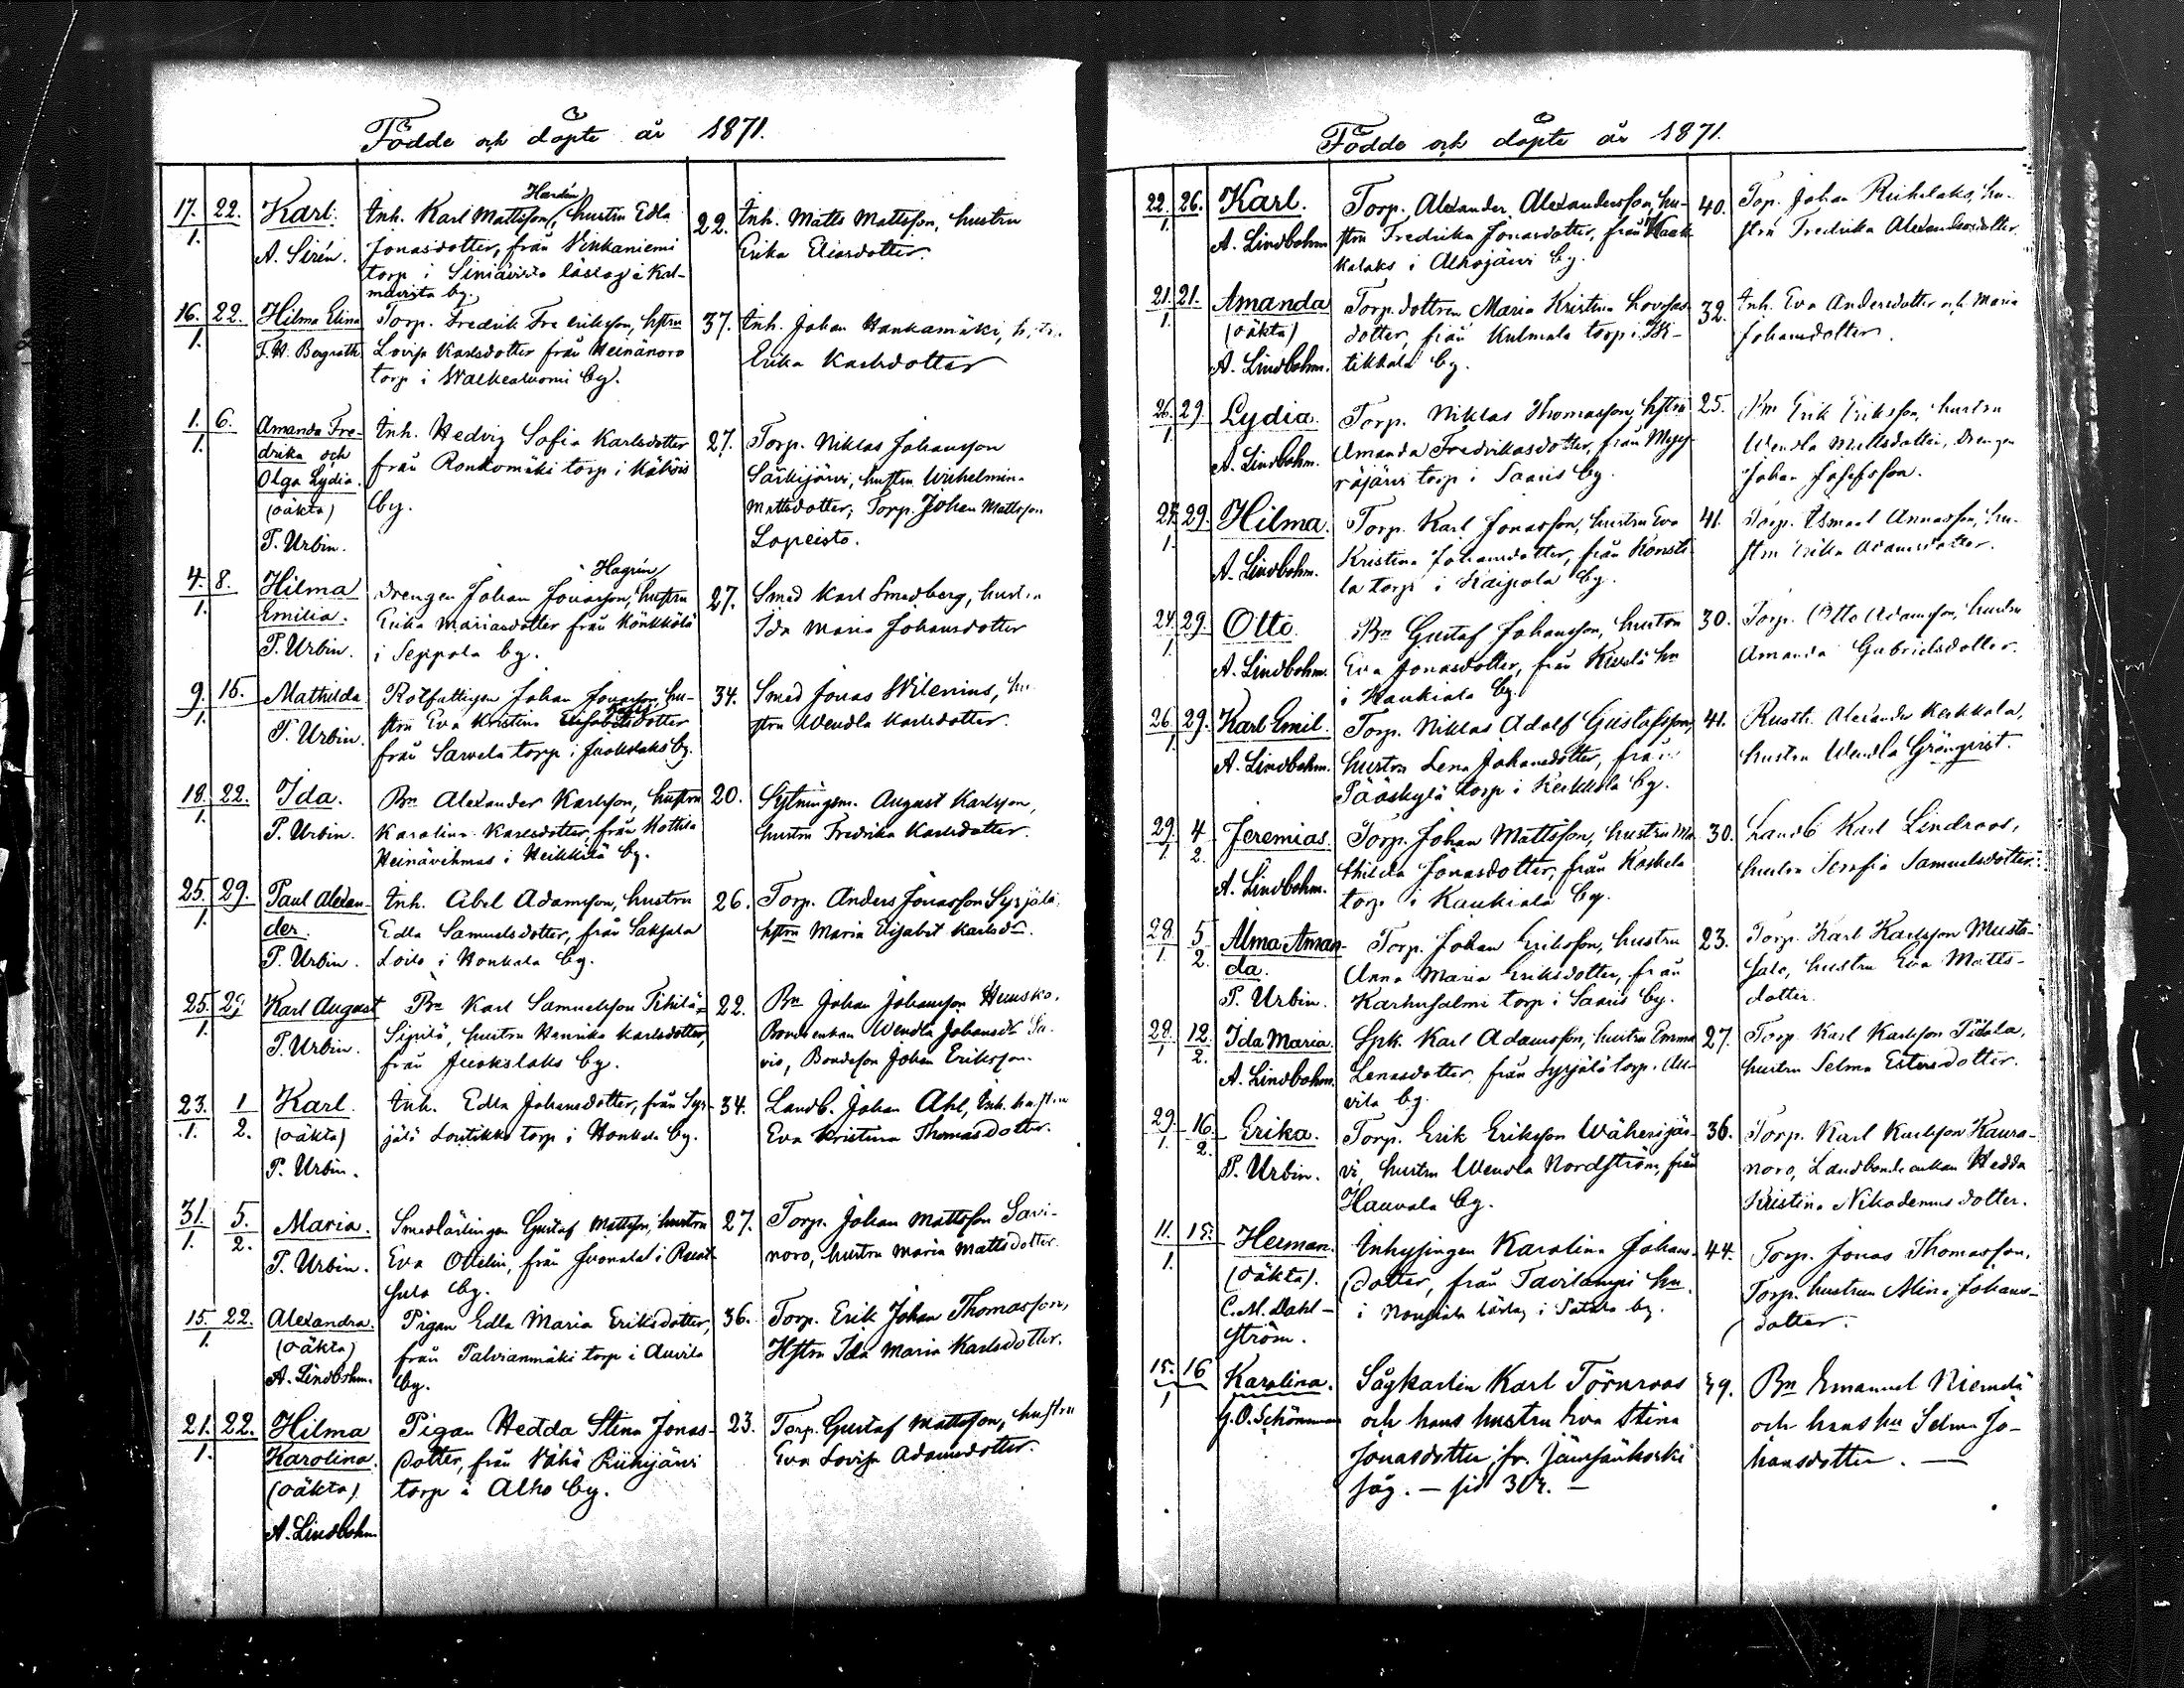 Födde och döpte år 1871.
17. 22. Karl. Inh. Karl Mattsson Hardén, hustru Edla 22. Inh. Matts Mattsson, hustru
1. A. Sirén. Jonasdotter, från Vinkaniemi Erika Eliasdotter.
torp i Siniävirta låslag i Kal-
mavirta by.
16. 22. Hilma Elina Torp. Fredrik Fredriksson, hstru 37. Inh. Johan Hankamäki,
1. F. W. Bergroth Lovisa Karlsdotter från Heinänoro Erika Karlsdotter
torp i Walkealuomi by.
1. 6. Amanda Fre- Inh. Hedvig Sofia Karlsdotter 27. Torp. Niklas Johansson
1. drika och från Ronkomäki torp i Särkijärvi, hustru Wilhelmina
Olga Lydia. by. Mattsdotter, Torp. Johan Mattsson
(oäkta) Lopeisto.
P. Urbin.
4. 8. Hilma Drengen Johan Jonasson Hagrén, hustru 27. Smed Karl Smedberg, hustru
1. Emilia. Erika Mariasdotter från Könkkölä Ida Maria Johansdotter
P. Urbin. i Seppola by.
9. 15. Mathilda Rotfattigen Johan Jonasson, hu- 34. Smed Jonas Wilenius, hu
1. P. Urbin. stru Eva Kristina dotter stru Wendla Karlsdotter.
från Sarvela torp i Juokslaks by.
18. 22. Ida. Bn Alexander Karlsson, hustru 20. Sytningsm. August Karlsson,
1. P. Urbin. Karolina Karlsdotter, från Mattila hustru Fredrika Karlsdotter.
Heinävihmas i Heikkilä by.
25. 29. Paul Alexan- Inh. Abel Adamsson, hustru 26. Torp. Anders Jonasson Syrjälä,
1. der. Edla Samuelsdotter, från Saksala hstru Maria Elisabet Karlsdr.
P. Urbin. Loilo i Honkala by.
25. 29 Karl August Bn Karl Samuelsson Tihilä= 22. Bn Johan Johansson
1. P. Urbin. Sipilä, hustru Henrika Karlsdotter, Bondeenkan Wendla Johansdr
från Juokslaks by. Bondeson Johan Eriksson.
23. 1 Karl. Inh. Edla Johansdotter, från Syr- 34. Landb. Johan Ahl, Inh. hustru
1. 2. (oäkta) jälä Loutikko torp i Honkala by. Eva Kristina Thomasdotter.
P. Urbin.
31 5. Maria. Smedlärlingen Gustaf Mattsson, hustru 27. Torp. Johan Mattsson Savi-
1. 2. P. Urbin. Eva Ottelin, från Ivonala i Ruot- noro, hustru Maria Mattsdotter.
sula by.
15. 22. Alexandra. Pigan Edla Maria Eriksdotter, 36. Torp. Erik Johan Thomasson,
1. (oäkta) från Talvianmäki torp i Auvila Hstru Ida Maria Karlsdotter.
A. Lindbohm. by.
21. 22. Hilma Pigan Hedda Stina Jonas- 23. Torp. Gustaf Mattsson, hustru
1. Karolina. dotter, från Vähä Riihijärvi Eva Lovisa Adamsdotter.
(oäkta) torp i Alho by.
A. Lindbohm
Födde och döpte år 1871.
22. 26. Karl. Torp. Alexander Alexandersson, hu- 40. Torp. Johan Riihilaks, hu-
1. A. Lindbohm stru Fredrika Jonasdotter, från Kaak- stru Fredrika Alexandersdotter.
kalaks i Alhojärvi by.
21. 21. Amanda Torp.dottren Maria Kristina Lovisas 32. Inh. Eva Andersdotter och Maria
1. (oäkta) dotter, från Kulmala torp i Johansdotter.
A. Lindbohm. tikkala by.
26. 29. Lydia. Torp. Niklas Thomasson, hstru 25. Erik Eriksson, hustru
1. A. Lindbohm. Amanda Fredrikasdotter, från Wendla Mattsdotter, Drengen
räjärvi torp i Saaris by. Johan Josefsson.
27. 29. Hilma. Torp. Karl Jonasson, hustru Eva 41. Torp. Ismael Annasson, hu-
1. A. Lindbohm. Kristina Johansdotter, från Konsti- stru Erika Adamsdotter.
la torp i Kaipola by.
24. 29. Otto. Bn Gustaf Johansson, hustru 30. Torp. Otto Adamsson, hustru
1 A. Lindbohm. Eva Jonasdotter, från Kivelä hn Amanda Gabrielsdotter.
i Kaukiala by.
26. 29. Karl Emil. Torp. Niklas Adolf Gustafsson, 41. Rusth. Alexander Kerkkola,
1. A. Lindbohm. hustru Lena Johansdotter, från hustru Wendla Grönqvist.
Pääskylä torp i Kerkkola by.
29. 4 Jeremias. Torp. Johan Mattsson, hustru Ma- 30. Landb Karl Lindroos,
1. 2. A. Lindbohm. thilda Jonasdotter, från Koskela hustru Serafia Samuelsdotter.
torp i Kaukiala by.
28. 5 Alma Aman- Torp. Johan Eriksson, hustru 23. Torp. Karl Karlsson Musta-
1. 2. da. Anna Maria Eriksdotter, från salo, hustru Eva Matts-
P. Urbin. Karhusalmi torp i Saaris by. dotter.
28. 12. Ida Maria. Spk. Karl Adamsson, hustru Emma 27. Torp. Karl Karlsson
1 2. A. Lindbohm. Lenasdotter från Syrjälä torp i Au- hustru Selma Estersdotter.
vila by.
29. 16. Erika. Torp. Erik Eriksson Wäherijär- 36. Torp. Karl Karlsson Kaura-
1. 2. P. Urbin. vi, hustru Wendla Nordström, från noro, Landbondeenkan Hedda
Hauvala by. Kristina Nikodemusdotter.
11. 15. Herman. Inhysingen Karolina Johans- 44. Torp. Jonas Thomasson,
1. (oäkta). dotter, från Tavilampi hn Torp. hustrun Mina Johans-
C. M. Dahl- i låslag i by. dotter.
ström.
15. 16 Karolina. Sågkarlen Karl Törnroos 39. Bn Emanuel Niemelä
1 G. O. Schönman och hans hustru Eva Stina och hans hu Selma Jo-
Jonasdotter, fr. Jämsänkoski hansdotter. —
såg. — sid 303. —